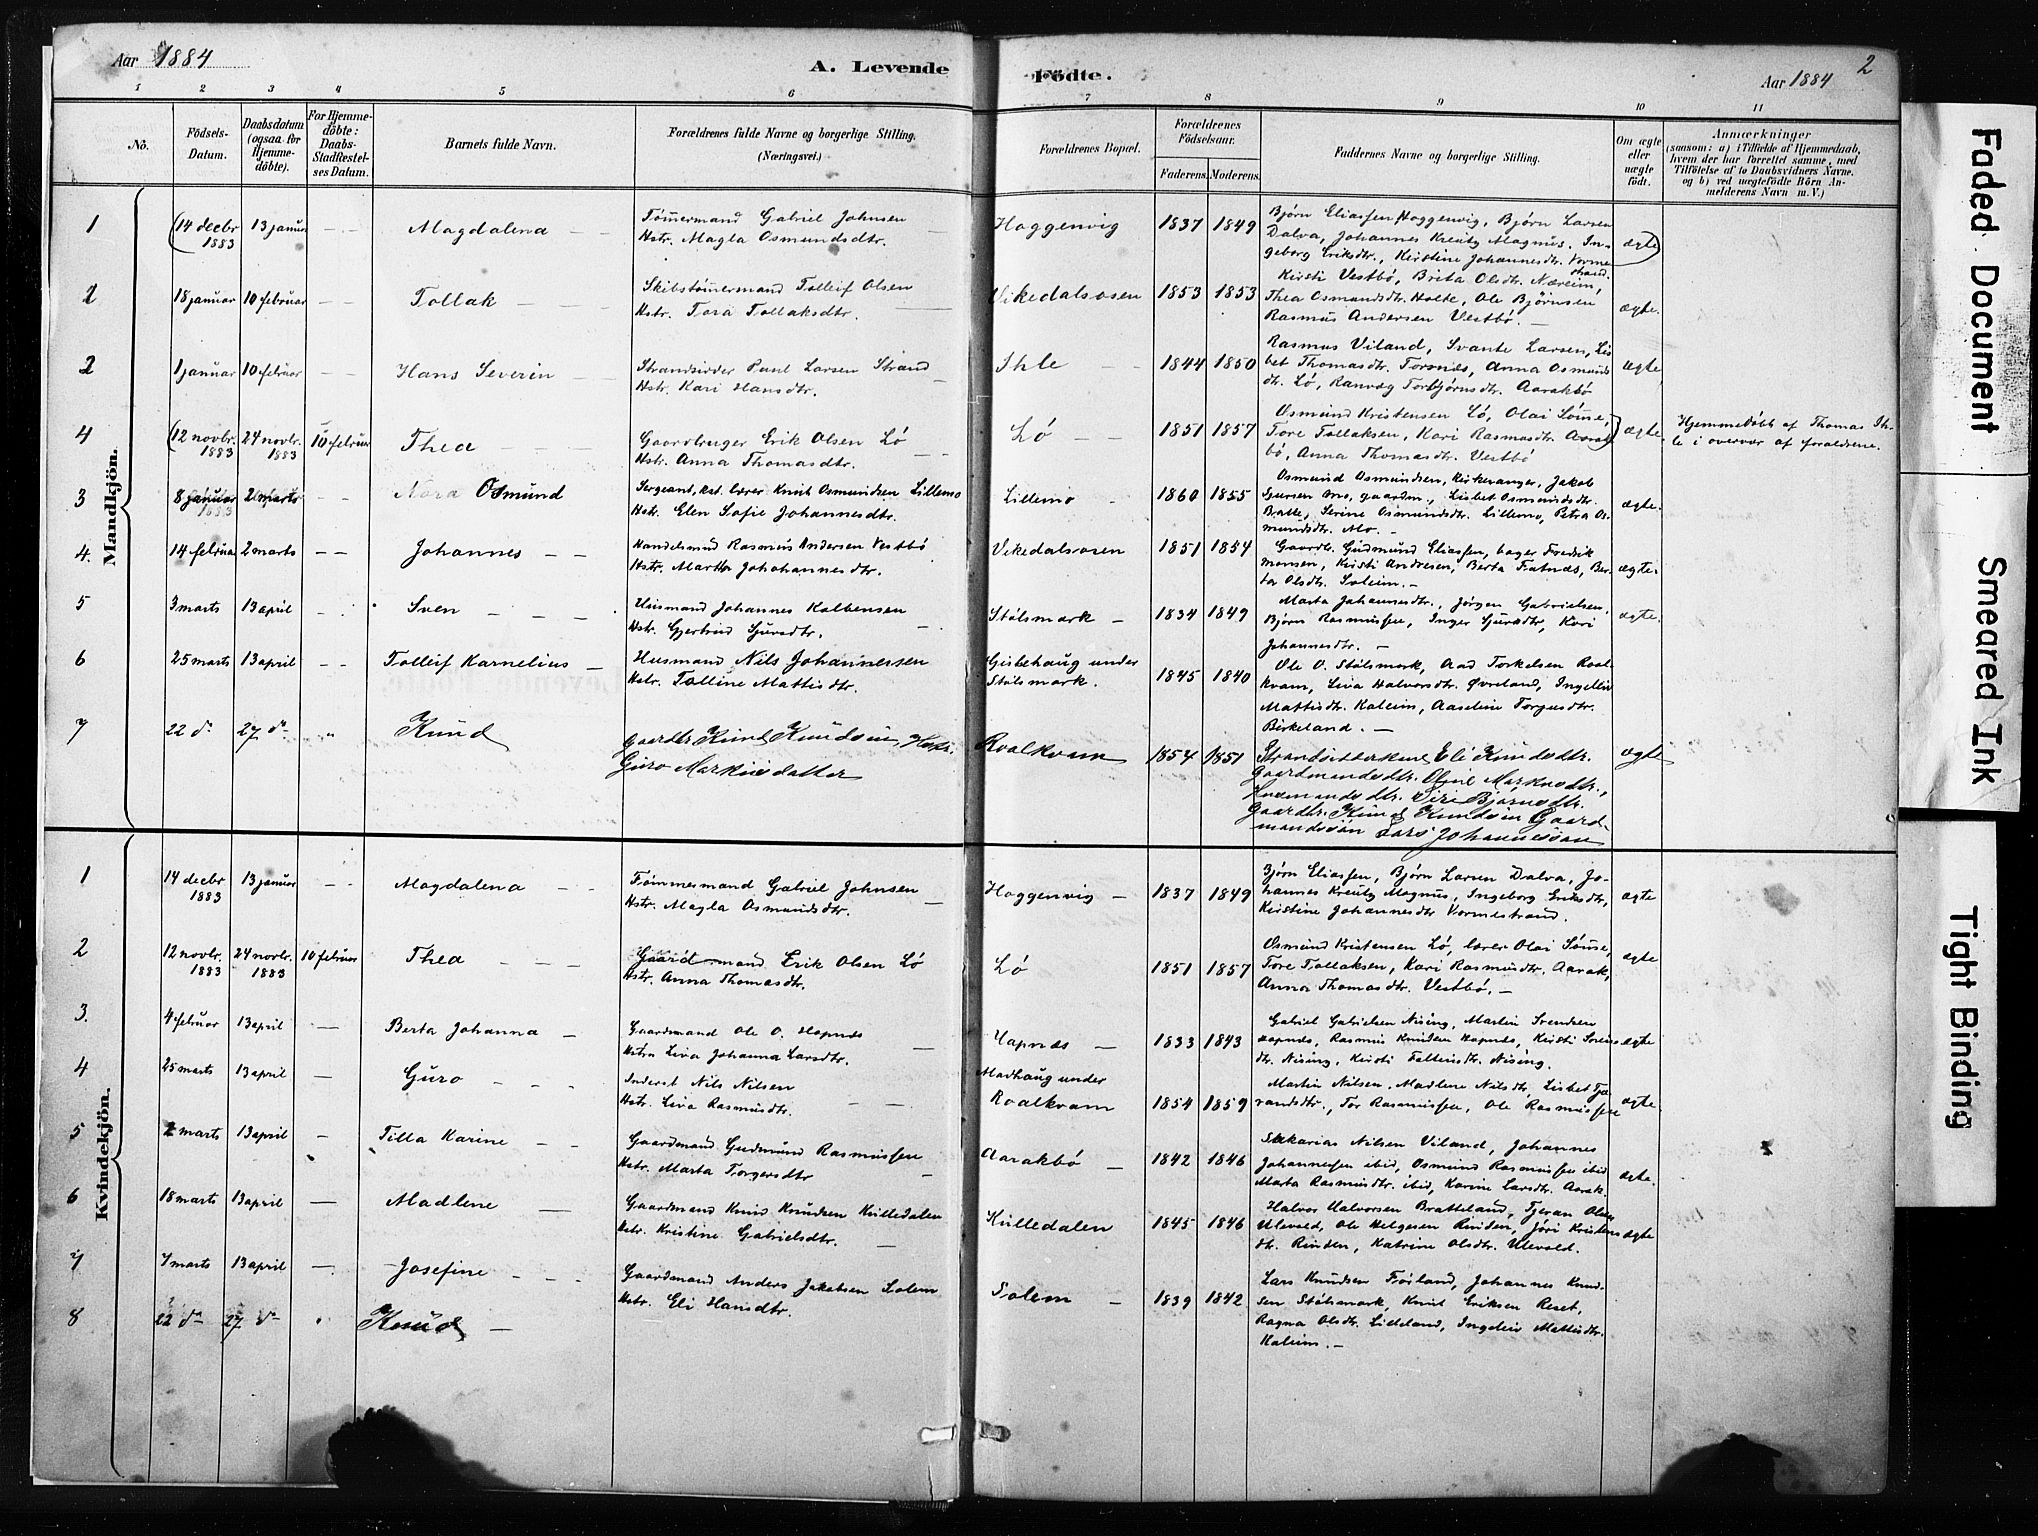 Aar 1884
A. Levende
Födte.
Aar 1884
2
1 2 3 4 5 6 7 8 9 10 11
No.
Födsels-Datum.
Daabsdatum (ogsaa for Hjemme-döbte).
For Hjemme-döbte: Daabs-Stadfæstel-ses Datum.
Barnets fulde Navn.
Forældrenes fulde Navne og borgerlige Stilling. (Næringsvei.)
Forældrenes Bopæl.
Forældrenes Födselsaar.
Faderens. Moderens.
Faddernes Navne og borgerlige Stilling.
Om ægte eller uægte födt.
Anmærkninger
(saasom: a) i Tilfælde af Hjemmedaab, hvem der har forrettet samme, med Tilföielse af to Daabsvidners Navne, og b) ved uægtefödte Börn An-melderens Navn m. V.)
Mandkjön.
1 (14 decbr 1883 13 januar Magdalena Tömmermand Gabriel Johnsen
Hstr. Magla Osmundsdtr. Haggenvig 1837 1849 Bjørn Eliassen Haggenvig, Bjørn Larsen
Dalva, Johannes Kreutz Magnus, In-
geborg Eriksdtr., Kirstine Johannesdtr. Vorme
strand. ægte)
2 18 januar 10 februar Tollak Skibstömmermand Tolleif Olsen
Hstr. Tora Tollaksdtr. Vikedalsosen 1853 1853 Kirsti Vestbö, Brita Olsdtr. Næreim,
Thea Osmundsdtr. Holte, Ole Bjørnsen
Rasmus Andersen Vestbö. ægte.
2 1 januar 10 februar Hans Severin Strandsidder Paul Larsen Strand
Hstr. Kari Hansdtr. Ihle 1844 1850 Rasmus Viland, Svante Larsen, Lis
bet Thomasdtr. Torsnæs, Anna Osmunds
dtr. Lö, Ranvæg Torbjørnsdtr. Aarakbö ægte
4 (12 novbr. 1883 24 novbr. 1883 10 februar Thea Gaardbruger Erik Olsen Lö
Hstr. Anna Thomasdtr. Lö 1851 1857 Osmund Kristensen Lö, Olai Sömme,
Tore Tollaksen, Kari Rasmusdtr. Aarak
bö, Anna Thomasdtr. Vestbö ) ægte Hjemmedöbt af Thomas Ih-
le i overvær af forældrene.
3 8 januar 2 marts Osmund Sergeant, kst. lærer Knut Osmundsen Lillemo
Hstr. Elen Sofie Johannesdtr. Lillemo 1860 1855 Osmund Osmundsen, kirkesanger, Jakob
Sjursen Mo, gaardm., Lisbet Osmundsdtr.
Bratte, Serine Osmundsdtr. Lillemo, Petra Os-
mundsdtr. Mo. ægte.
4. 14 februar 2 marts Johannes Handelsmnd Rasmus Andersen Vestbö
Hstr. Martha Johohannesdtr. Vikedalsosen 1851 1854 Gaardb. Gudmund Eliassen, bager Fredrik
Monsen, Kirsti Andresen, Berta Fatnæs, Ber-
ta Olsdtr. Soleim. ægte.
5 3 marts 13 april Sven Husmand Johannes Kolbensen
Hstr. Gjertrud Sjursdtr. Stölsmark 1834 1849 Marta Johannesdtr., Jörgen Gabrielsen,
Björn Rasmussen, Inger Sjursdtr, Kari
Johannesdtr. ægte.
6 25 marts 13 april Tolleif Kornelius Husmand Nils Johannessen
Hstr. Tolline Mattisdtr. Gisbehaug under
Stölsmark. 1845 1840 Ole O. Stölsmark, Aad Torkelsen Roal-
kvam, Liva Halvorsdtr. Øvreland, Ingeleiv
Mattisdtr. Haleim, Aaselein Torgersdtr.
Birkeland.
7 22 do 27 do Knud Gaardbr Knud Knudsen, Hstr.
Guro Markusdatter Roalkvam 1854 1851 Strandsidderkone Eli Knudsdtr.
Gaardmandsdtr. Oline Markusdtr.,
Husmandsdtr. Siri Bjørnsdtr.
Gaardbr. Knud Knudsen Gaard-
mandssön Lars Johannessen ægte
Kvindekjön.
1 14 decbr 1883 13 januar Magdalena Tömmermand Gabriel Johnsen
Hstr. Magla Osmundsdtr. Haggenvig 1837 1849 Björn Eliassen, Björn Larsen Dalva, Jo-
hannes Kreutz Magnus, Ingeborg Eriksdtr,
Kirstine Johannesdtr Vormestrand. ægte
2 12 novbr. 1883 24 novbr. 1883 10 februar Thea Gaardmand Erik Olsen Lö
Hstr. Anna Thomasdtr. Lö 1851 1857 Osmund Kristensen Lö, lærer Olai Sömme,
Tore Tollaksen, Kari Rasmusdtr. Aarak,
Anna Thomasdtr. Vestbö. ægte
3. 4 februar 13 april Berta Johanna Gaardmand Ole O. Hapnæs
Hstr. Liva Johanna Larsdtr. Hapnæs 1833 1843 Gabriel Gabrielsen Nising, Martin Svendsen
Hapnæs, Rasmus Knudsen Hapnæs, Kirsti Sveins
dtr. Nising, Kirsti Tolleivsdtr. Nising. ægte
4 25 marts 13 april Guro Inderst Nils Nilsen
Hstr. Liva Rasmusdtr. Madhaug under
Roalkvam 1854 1859 Martin Nilsen, Madlene Nilsdtr, Lisbet Tjø
randsdtr., Tor Rasmussen, Ole Rasmussen ægte.
5 2 marts 13 april Tilla Karine Gaardmand Gudmund Rasmussen
Hstr. Marta Torgersdtr Aarakbö 1842 1846 Sakarias Nilsen Viland, Johannes
Johannessen ibid, Osmund Rasmussen ibid
Marta Rasmusdtr. ibid, Karine Larsdtr. Aarak. ægte.
6 18 marts 13 april Madlene Gaardmand Knud Knudsen Kulledalen
Hstr. Kristine Gabrielsdtr. Kulledalen 1845 1846 Halvor Halvorsen Bratteland, Tjeran Olsen
Ulevold, Ole Helgesen Rinden, Jöri Kristens
dtr. Rinden, Katrine Olsdtr. Ulevold. ægte
7 7 marts 13 april Josefine Gaardmand Anders Jakobsen Solem
Hstr. Eli Hansdtr. Solem 1839 1842 Lars Knudsen Förland, Johannes Knud-
sen Stölsmark, Knut Eriksen Reset,
Ragna Olsdtr. Lilleland, Ingeleiv Mattisdtr.
Haleim.
8 22 do 27 do Knud
Faded Document
Smeared Ink
Tight Binding